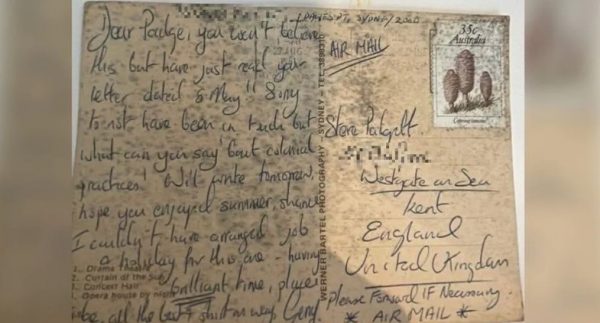 Dear Padge, you won't believe
this but have just read your
letter dated 5 May!! Sorry
to not have been in touch but
what can you say 'bout colonial
practices! Will write tomorrow,
hope you enjoyed summer, shame
I couldn't have arranged job
& holiday for this one - having
brilliant time, place
be, all the best
1. Drama Theatre
2. Curtain of the Sun
3. Concert Hall
4. Opera house by night
WERNER BARTEL PHOTOGRAPHY SYDNEY TEL:
SYDNEY/2000
AIR MAIL
35c
Australia
Steve Padgett.
Westgate on Sea
Kent
England
United Kingdom
Please Forward IF Necessary
* AIR MAIL *